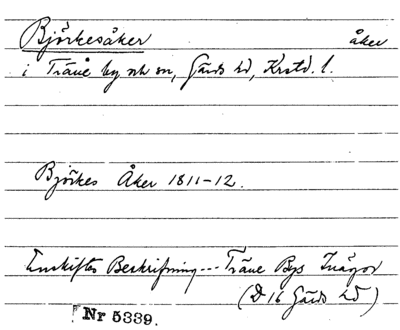 Björkesåker åker
i Träne by och sn, Gärds hd, Krstd. l.
Björkes Åker 1811-12.
Enskiftes Beskrifning --- Träne Bys Inägor
(D 16 Gärds hd)
Nr 5339.